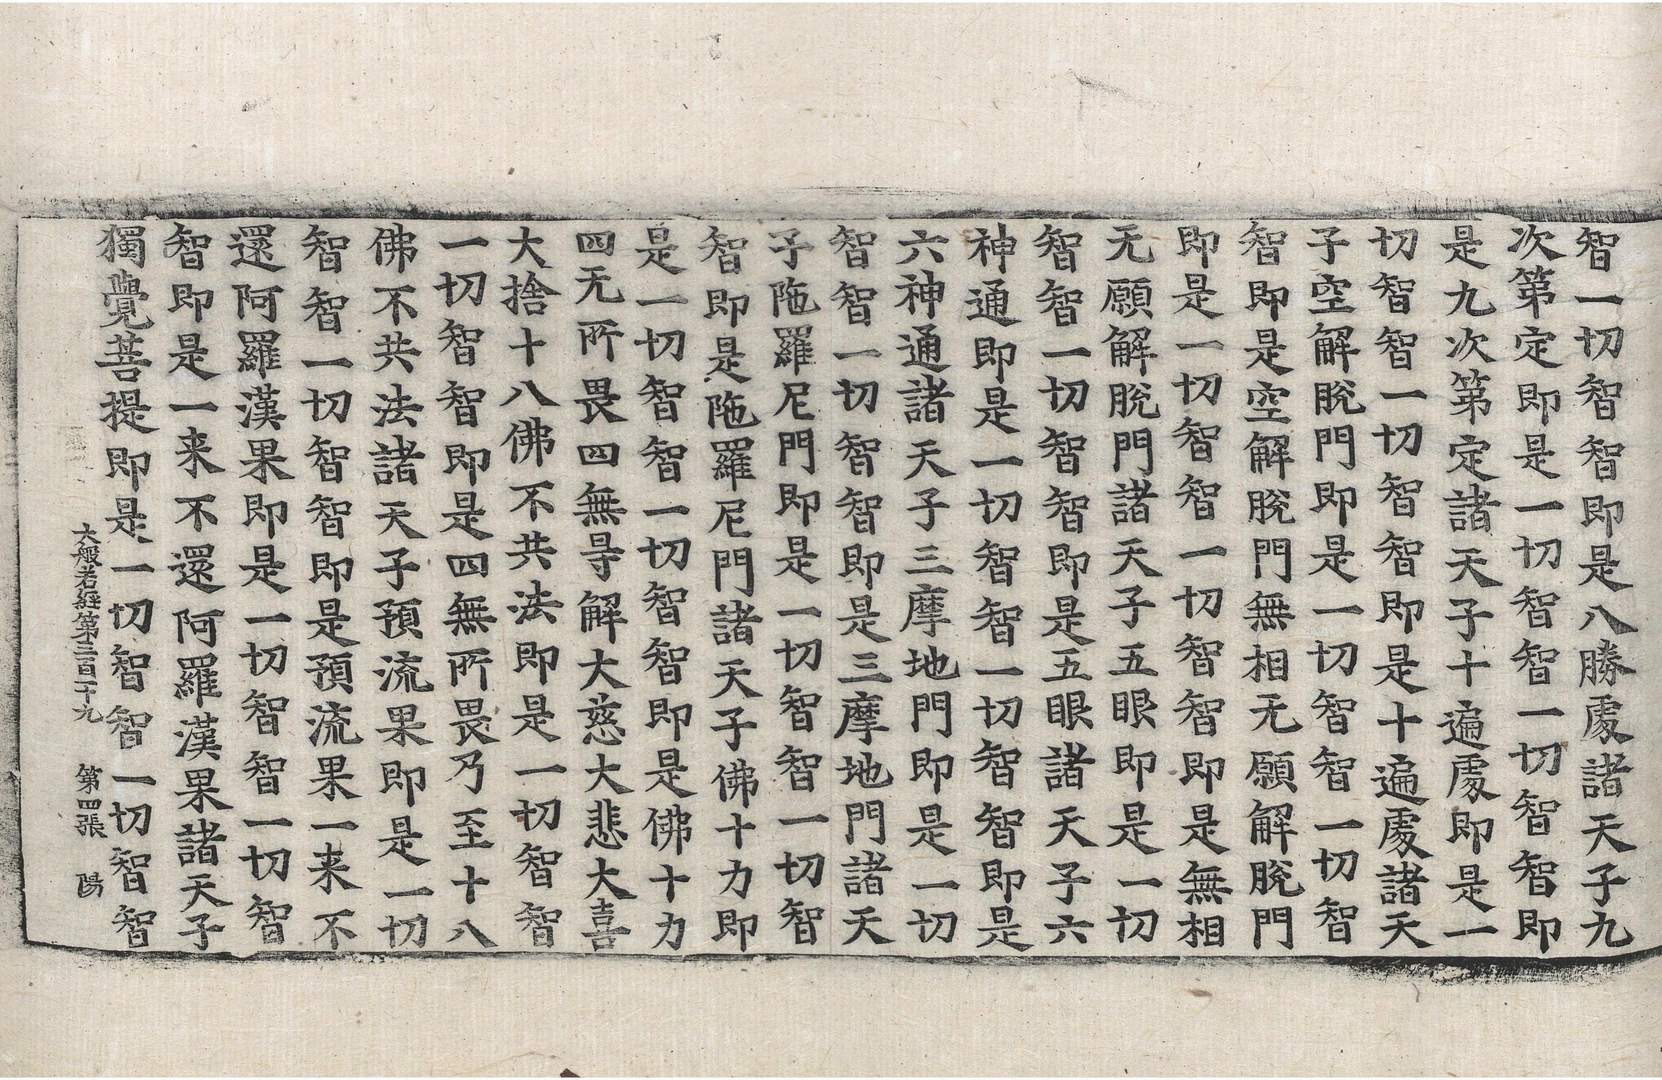 智一切智智即是八勝處諸天子九
次第定即是一切智智一切智智即
是九次第定諸天子十遍處即是一
切智智一切智智即是十遍處諸天
子空解脫門即是一切智智一切智
智即是空解脫門無相无願解脫門
即是一切智智一切智智即是無相
无願解脫門諸天子五眼即是一切
智智一切智智即是五眼諸天子六
神通即是一切智智一切智智即是
六神通諸天子三摩地門即是一切
智智一切智智即是三摩地門諸天
子陁羅尼門即是一切智智一切智
智即是陁羅尼門諸天子佛十力即
是一切智智一切智智即是佛十力
四无所畏四無㝵解大慈大悲大喜
大捨十八佛不共法即是一切智智
一切智智即是四無所畏乃至十八
佛不共法諸天子預流果即是一切
智智一切智智即是預流果一来不
還阿羅漢果即是一切智智一切智
智即是一来不還阿羅漢果諸天子
獨覺菩提即是一切智智一切智智
大般若經第三百一十九 第四張 陽